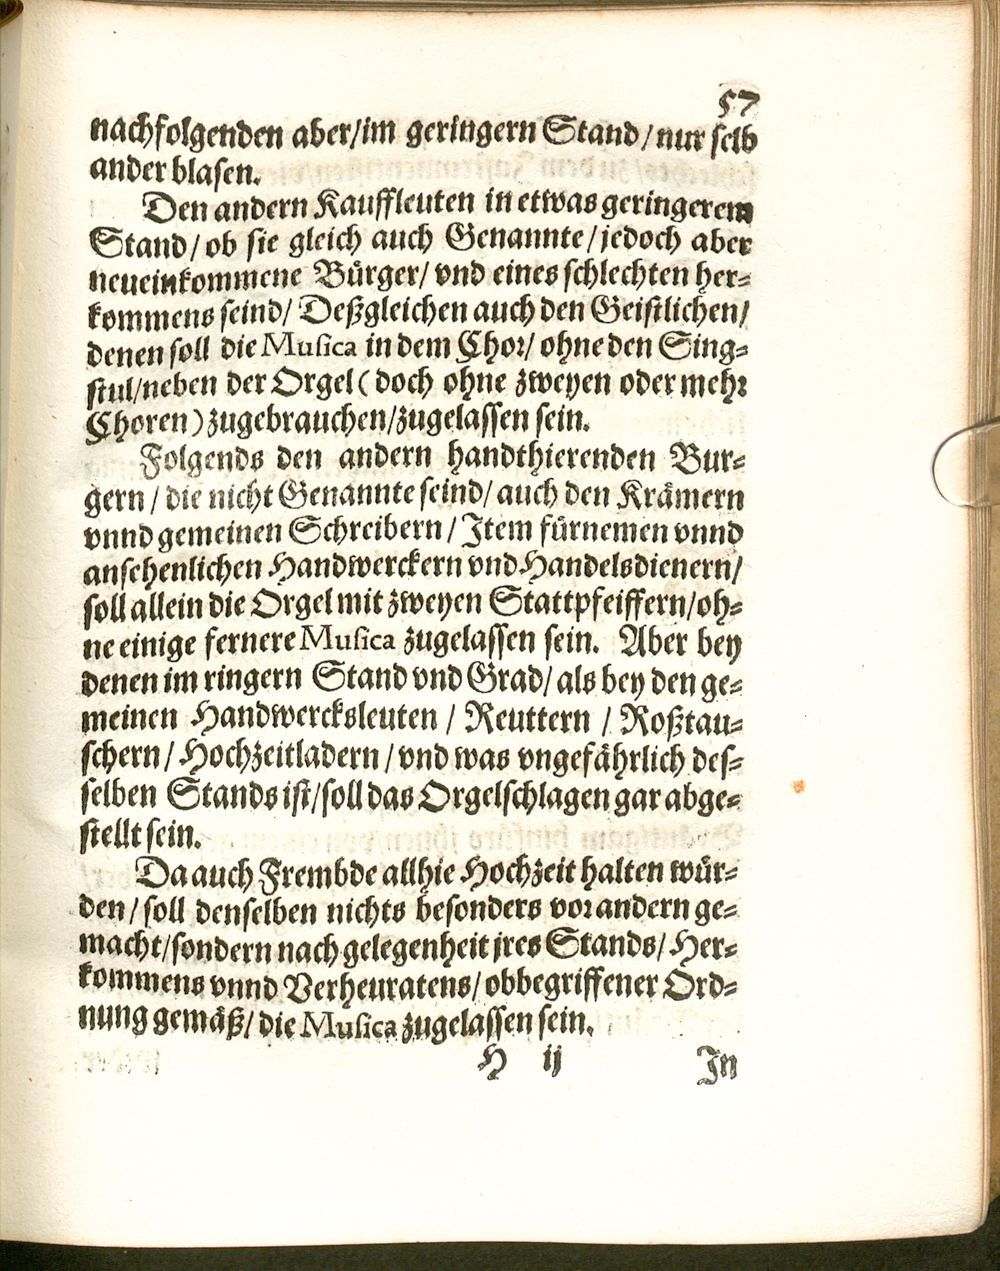 57
nachfolgenden aber/im geringern Stand/nur selb
ander blasen.
Den andern Kauffleuten in etwas geringerem
Stand/ob sie gleich auch Genannte/jedoch aber
neueinkommene Bürger/vnd eines schlechten her-
kommens seind/Deßgleichen auch den Geistlichen/
denen soll die Musica in dem Chor/ohne den Sing-
stul/neben der Orgel (doch ohne zweyen oder mehr
Choren) zugebrauchen/zugelassen sein.
Folgends den andern handthierenden Bur-
gern/die nicht Genannte seind/auch den Krämern
vnnd gemeinen Schreibern/Item fürnemen vnnd
ansehenlichen Handwerckern vnd Handelsdienern/
soll allein die Orgel mit zweyen Stattpfeiffern/oh-
ne einige fernere Musica zugelassen sein. Aber bey
denen im ringern Stand vnd Grad/als bey den ge-
meinen Handwercksleuten/Reuttern/Roßtau-
schern/Hochzeitladern/vnd was vngefährlich des-
selben Stands ist/soll das Orgelschlagen gar abge-
stellt sein.
Da auch Frembde allhie Hochzeit halten wür-
den/soll denselben nichts besonders vor andern ge-
macht/sondern nach gelegenheit jres Stands/Her-
kommens vnnd Verheuratens/obbegriffener Ord-
nung gemäß/die Musica zugelassen sein.
H ij In